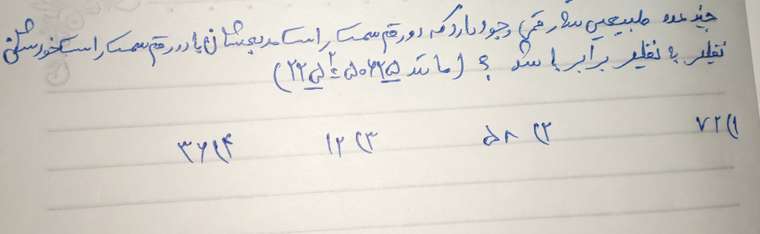 چند عدد طبیعی سه رقمی وجود دارد که دو رقم سمت راست مربعشان با دو رقم سمت راست خودشان
نظیر به نظیر برابر باشد ؟ (مانند
۱) ۷۲ ۲) ۵۸ ۳) ۱۲ ۴) ۳۶